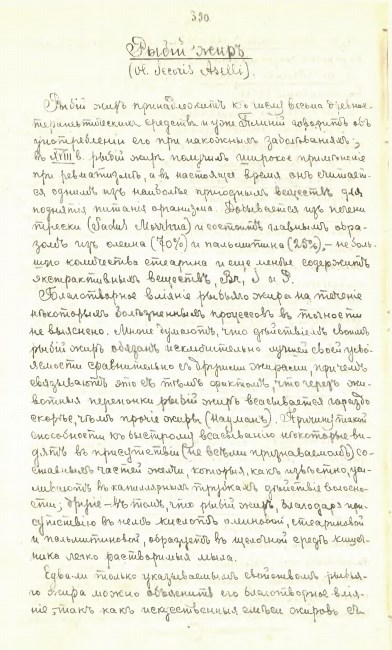 390.
Рыбій жиръ
(Ol. Jecoris Aselli).
Рыбій жиръ принадлежитъ къ числу весьма древне-
терапевтическихъ средствъ и уже Плиній говоритъ объ
употребленіи его при накожныхъ заболѣваніяхъ;
въ XVIII в. рыбій жиръ получилъ широкое примѣненіе
при ревматизмѣ, а въ настоящее время онъ считает-
ся однимъ изъ наиболѣе пригодныхъ веществъ для
поднятія питанія организма. Добывается изъ печени
трески (Gadus Morrhua) и состоитъ главнымъ обра-
зомъ изъ олеина (70%) и пальмитина (25%), – неболь-
шого количества стеарина и еще менѣе содержитъ
экстрактивныхъ веществъ, Br, J и
Благотворное вліяніе рыбьяго жира на теченіе
нѣкоторыхъ болѣзненныхъ процессовъ въ точности
не выяснено. Многіе думаютъ, что дѣйствіемъ своимъ
рыбій жиръ обязанъ исключительно лучшей своей усво-
яемости сравнительно съ другими жирами, причемъ
связываютъ это съ тѣмъ фактомъ, что черезъ жи-
вотныя перепонки рыбій жиръ всасывается гораздо
скорѣе, чѣмъ прочіе жиры (Науманъ). Причину такой
способности къ быстрому всасыванію нѣкоторые ви-
дятъ въ присутствіи (не всѣми признаваемомъ) со-
ставныхъ частей желчи, которыя, какъ извѣстно, уси-
ливаютъ въ капиллярныхъ трубкахъ дѣйствіе волосно-
сти; другіе – въ томъ, что рыбій жиръ, благодаря при-
сутствію въ немъ кислотъ олеиновой, стеариновой
и пальмитиновой, образуетъ въ щелочной средѣ кишеч-
ника легко растворимыя мыла.
Едва ли только указываемымъ свойствомъ рыбья-
го жира можно объяснить его благотворное влія-
ніе, такъ какъ искусственныя смѣси жировъ съ